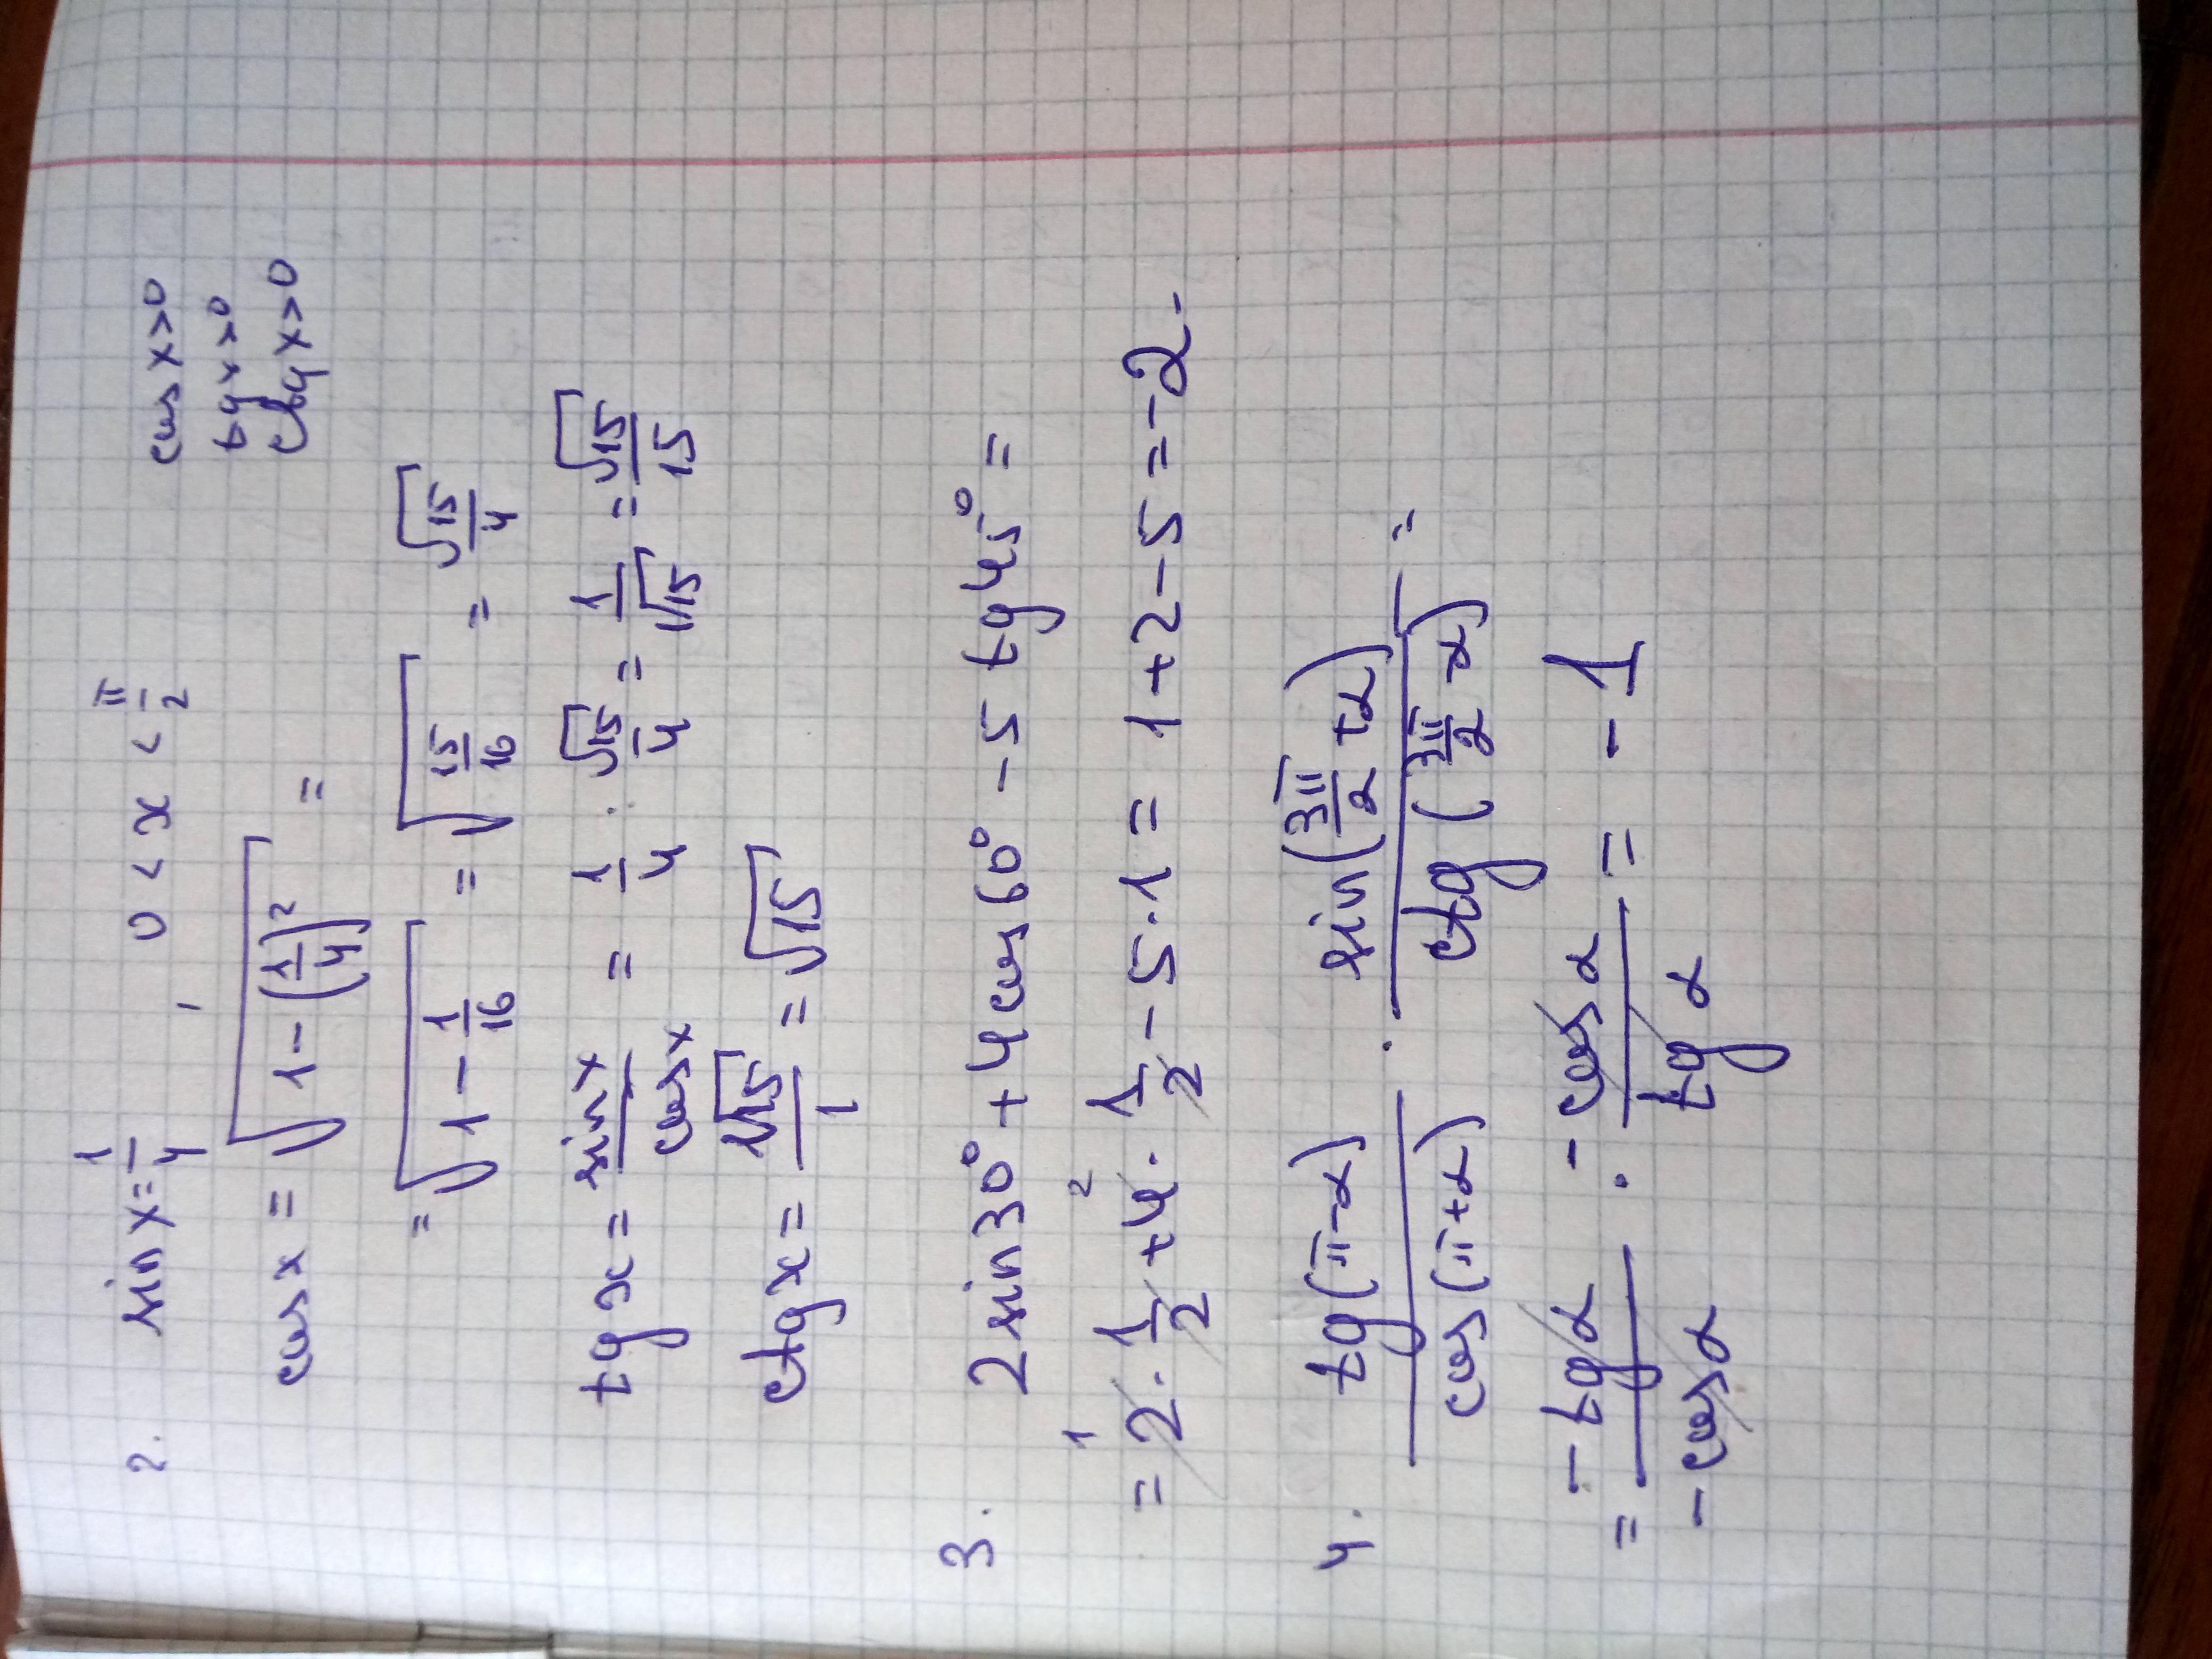 2. sin x = 1/4, 0 < x < π/2 cos x > 0
tg x > 0
ctg x > 0
cos x = √(1 - (1/4)²) =
= √(1 - 1/16) = √(15/16) = √15/4
tg x = sin x / cos x = 1/4 : √15/4 = 1/√15 = √15/15
ctg x = √15/1 = √15
3. 2 sin 30° + 4 cos 60° - 5 tg 45° =
= 2 · 1/2 + 4 · 1/2 - 5 · 1 = 1 + 2 - 5 = -2.
4. tg(π-α) / cos(π+α) · sin(3π/2 + α) / ctg(3π/2 - α) =
= -tg α / -cos α · -cos α / tg α = -1